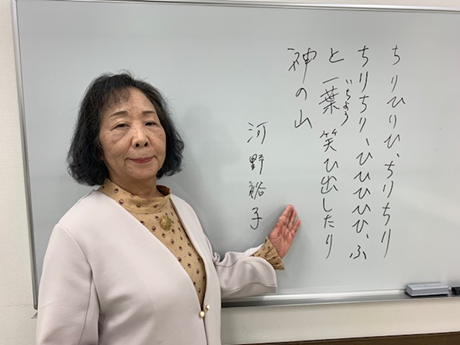 ちりひりひ、ちりちり
ちりちり、ひひひひひ、ふ
と一葉笑ひ出したり
いちよう
神の山
河野裕子